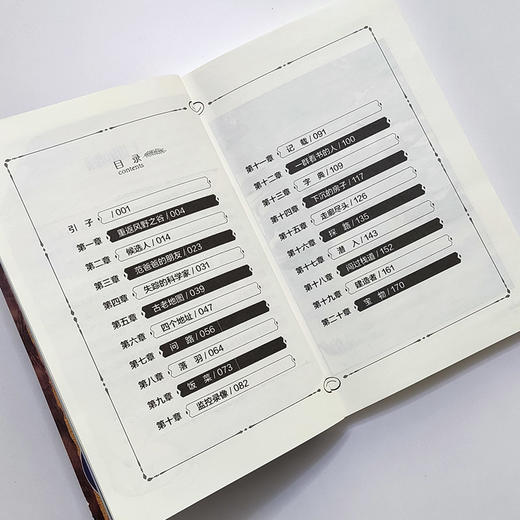 目录
contents
引 子 /001
第一章 重返风野之谷 / 004
第二章 候选人 / 014
第三章 范爸爸的朋友 / 023
第四章 失踪的科学家 / 031
第五章 古老地图 / 039
第六章 四个地址 / 047
第七章 问 路 / 056
第八章 落 羽 / 064
第九章 饭 菜 / 073
第十章 监控录像 / 082
第十一章 记 载 / 091
第十二章 一群看书的人 / 100
第十三章 字 典 / 109
第十四章 下沉的房子 / 117
第十五章 走廊尽头 / 126
第十六章 探 路 / 135
第十七章 潜 入 / 143
第十八章 闯过栈道 / 152
第十九章 建造者 / 161
第二十章 宝 物 / 170